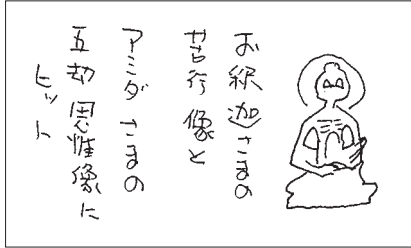 お釈迦さまの
苦行像と
アミダさまの
五劫思惟像に
ヒット